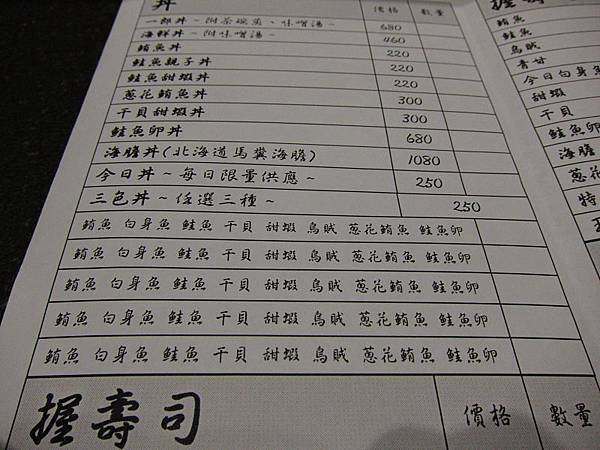 丼 價格 數量
一郎丼~附茶碗蒸、味噌湯~ 680
海鮮丼~附味噌湯~ 460
鮪魚丼 220
鮭魚親子丼 220
鮭魚甜蝦丼 220
蔥花鮪魚丼 300
干貝甜蝦丼 300
鮭魚卵丼 680
海膽丼(北海道馬糞海膽) 1080
今日丼~每日限量供應~ 250
三色丼~任選三種~ 250
鮪魚 白身魚 鮭魚 干貝 甜蝦 烏賊 蔥花鮪魚 鮭魚卵
鮪魚 白身魚 鮭魚 干貝 甜蝦 烏賊 蔥花鮪魚 鮭魚卵
鮪魚 白身魚 鮭魚 干貝 甜蝦 烏賊 蔥花鮪魚 鮭魚卵
鮪魚 白身魚 鮭魚 干貝 甜蝦 烏賊 蔥花鮪魚 鮭魚卵
鮪魚 白身魚 鮭魚 干貝 甜蝦 烏賊 蔥花鮪魚 鮭魚卵
握壽司 價格 數量
握壽
鮪魚
鮭魚
烏賊
青甘
今日白身魚
甜蝦
干貝
鮭魚卵
海膽
蔥花
特